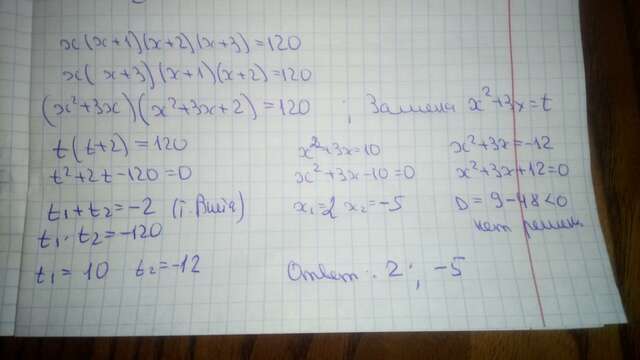 x(x+1)(x+2)(x+3)=120
x(x+3)(x+1)(x+2)=120
(x²+3x)(x²+3x+2)=120 ; Замена x²+3x=t
t(t+2)=120
t²+2t-120=0
t₁+t₂=-2 (т. Виета)
t₁·t₂=-120
t₁=10 t₂=-12
x²+3x=10
x²+3x-10=0
x₁=2 x₂=-5
x²+3x=-12
x²+3x+12=0
D=9-48<0
нет решен
Ответ: 2; -5